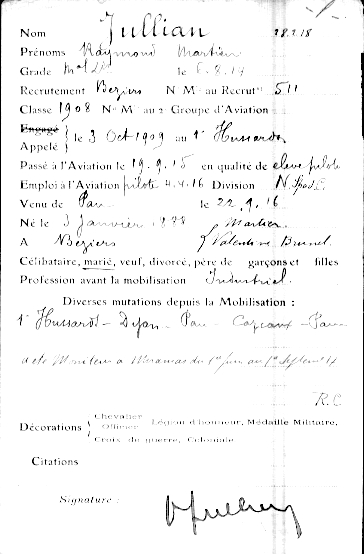 Nom Jullian 28.2.18
Prénoms Raymond Martien
Grade Mal le 8.8.14
Recrutement Beziers No Mle au Recrutt 511
Classe 1908 No Mle au 2e Groupe d'Aviation
Engagé
Appelé le 3 Oct 1909 au 1er Hussards
Passé à l'Aviation le 19.9.15 en qualité de eleve pilote
Emploi à l'Aviation pilote 4.4.16 Division N.
Venu de Pau le 22.9.16
Né le 3 Janvier 1888 Martien
A Beziers Valentine Brunel
Célibataire, marié, veuf, divorcé, père de garçons et filles
Profession avant la mobilisation Industriel
Diverses mutations depuis la Mobilisation :
1er Hussards - Dijon - Pau - Cazeaux - Pau
a été Moniteur a Miramas du 1er Juin au 1er Septembre
R.C
Décorations Chevalier
Officier Légion d'honneur, Médaille Militaire,
Croix de guerre, Coloniale
Citations
Signature : Jullian